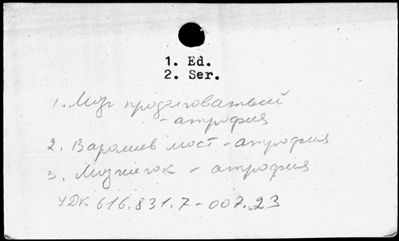 1. Ed.
2. Ser.
1. Мозг продолговатый
- атрофия
2. Варолиев мост - атрофия
3. Мозжечок - атрофия
УДК 616.831.7-007.23